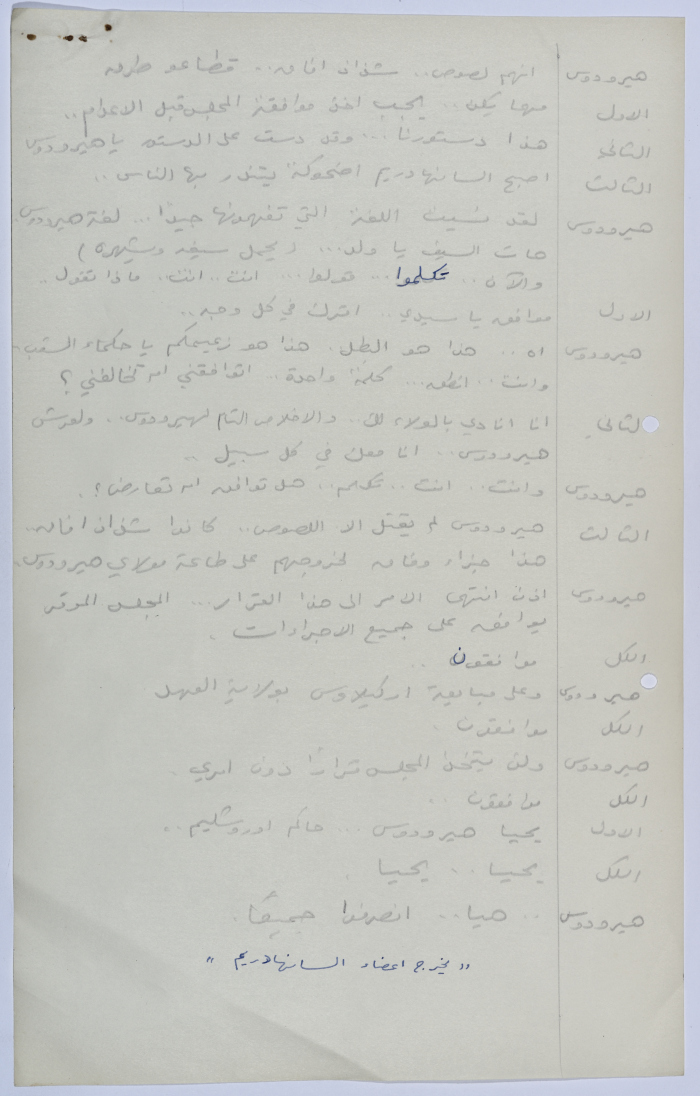 هيرودوس انهم لصوص.. شذاذ افاق.. قطاعو طرق
الاول مهما يكن.. يجب اخذ موافقة المجلس قبل الاعدام..
الثاني هذا دستورنا... وقد دست على الدستور يا هيرودوس
الثالث اصبح السانهادريم اضحوكة يتندر بها الناس..
هيرودوس لقد نسيت اللغة التي تفهمونها جيدًا... لغة هيرودوس.
هات السيف يا ولد... ( يحمل سيفه ويشهره )
والآن.. تكلموا... قولوا... انت.. انت.. ماذا تقول..
الاول موافق يا سيدي.. اترك في كل وجه..
هيرودوس اه.. هذا هو البطل. هذا هو زعيمكم يا حكماء الشعب..
وانت.. انطق... كلمة واحدة.. اتوافقني ام تخالفني؟
الثاني انا انادي بالولاء لك.. والاخلاص التام لهيرودوس.. ولعرش
هيرودوس.. انا معك في كل سبيل..
هيرودوس وانت.. انت.. تكلم.. هل توافق ام تعارض؟.
الثالث هيرودوس لم يقتل الا اللصوص.. كانوا شذاذ افاق..
هذا جزاء وفاق لخروجهم على طاعة مولاي هيرودوس..
هيرودوس اذن انتهى الامر الى هذا القرار... المجلس الموقر
يوافق على جميع الاجراءات.
الكل موافقون..
هيرودوس وعلى مبايعة اركيلاوس بولاية العهد
الكل موافقون.
هيرودوس ولن يتخذ المجلس قرارًا دون امري.
الكل موافقون..
الاول يحيا هيرودوس... حاكم اورشليم..
الكل يحيا.. يحيا.
هيرودوس.. هيا.. انصرفوا جميعًا.
" يخرج اعضاء السانهادريم "